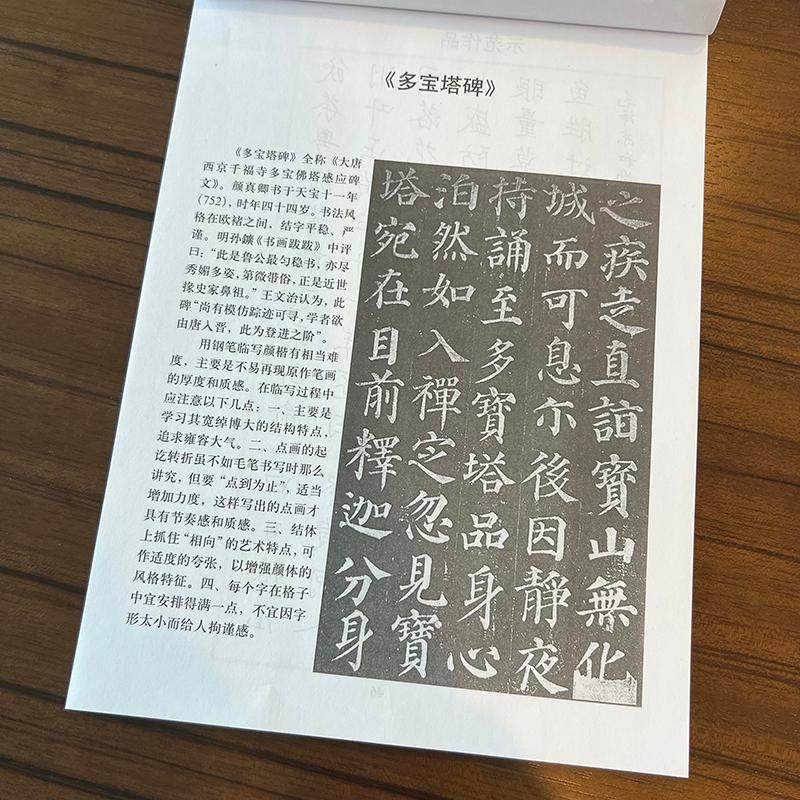 《多宝塔碑》
《多宝塔碑》全称《大唐
西京千福寺多宝佛塔感应碑
文》。颜真卿书于天宝十一年
(752)，时年四十四岁。书法风
格在欧褚之间，结字平稳、严
谨。明孙鑛《书画跋跋》中评
曰：“此是鲁公最匀稳书，亦尽
秀媚多姿，第微带俗，正是近世
掾史家鼻祖。”王文治认为，此
碑“尚有模仿踪迹可寻，学者欲
由唐入晋，此为登进之阶”。
用钢笔临写颜楷有相当难
度，主要是不易再现原作笔画
的厚度和质感。在临写过程中
应注意以下几点：一、主要是
学习其宽绰博大的结构特点，
追求雍容大气。二、点画的起
讫转折虽不如毛笔书写时那么
讲究，但要“点到为止”，适当
增加力度，这样写出的点画才
具有节奏感和质感。三、结体
上抓住“相向”的艺术特点，可
作适度的夸张，以增强颜体的
风格特征。四、每个字在格子
中宜安排得满一点，不宜因字
形太小而给人拘谨感。
之疾走直詣寶山無化
城而可息尒後因靜夜
持誦至多寶塔品身心
泊然如入禪定忽見寶
塔宛在目前釋迦分身